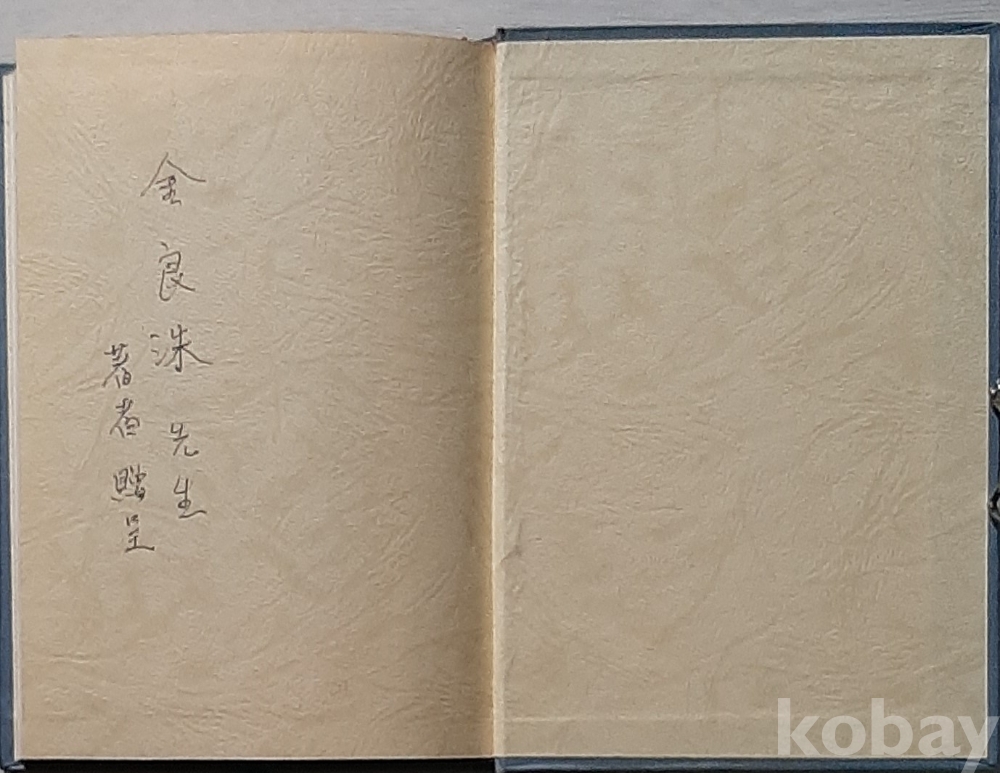 金良洙 先生
著者 贈呈
kobay